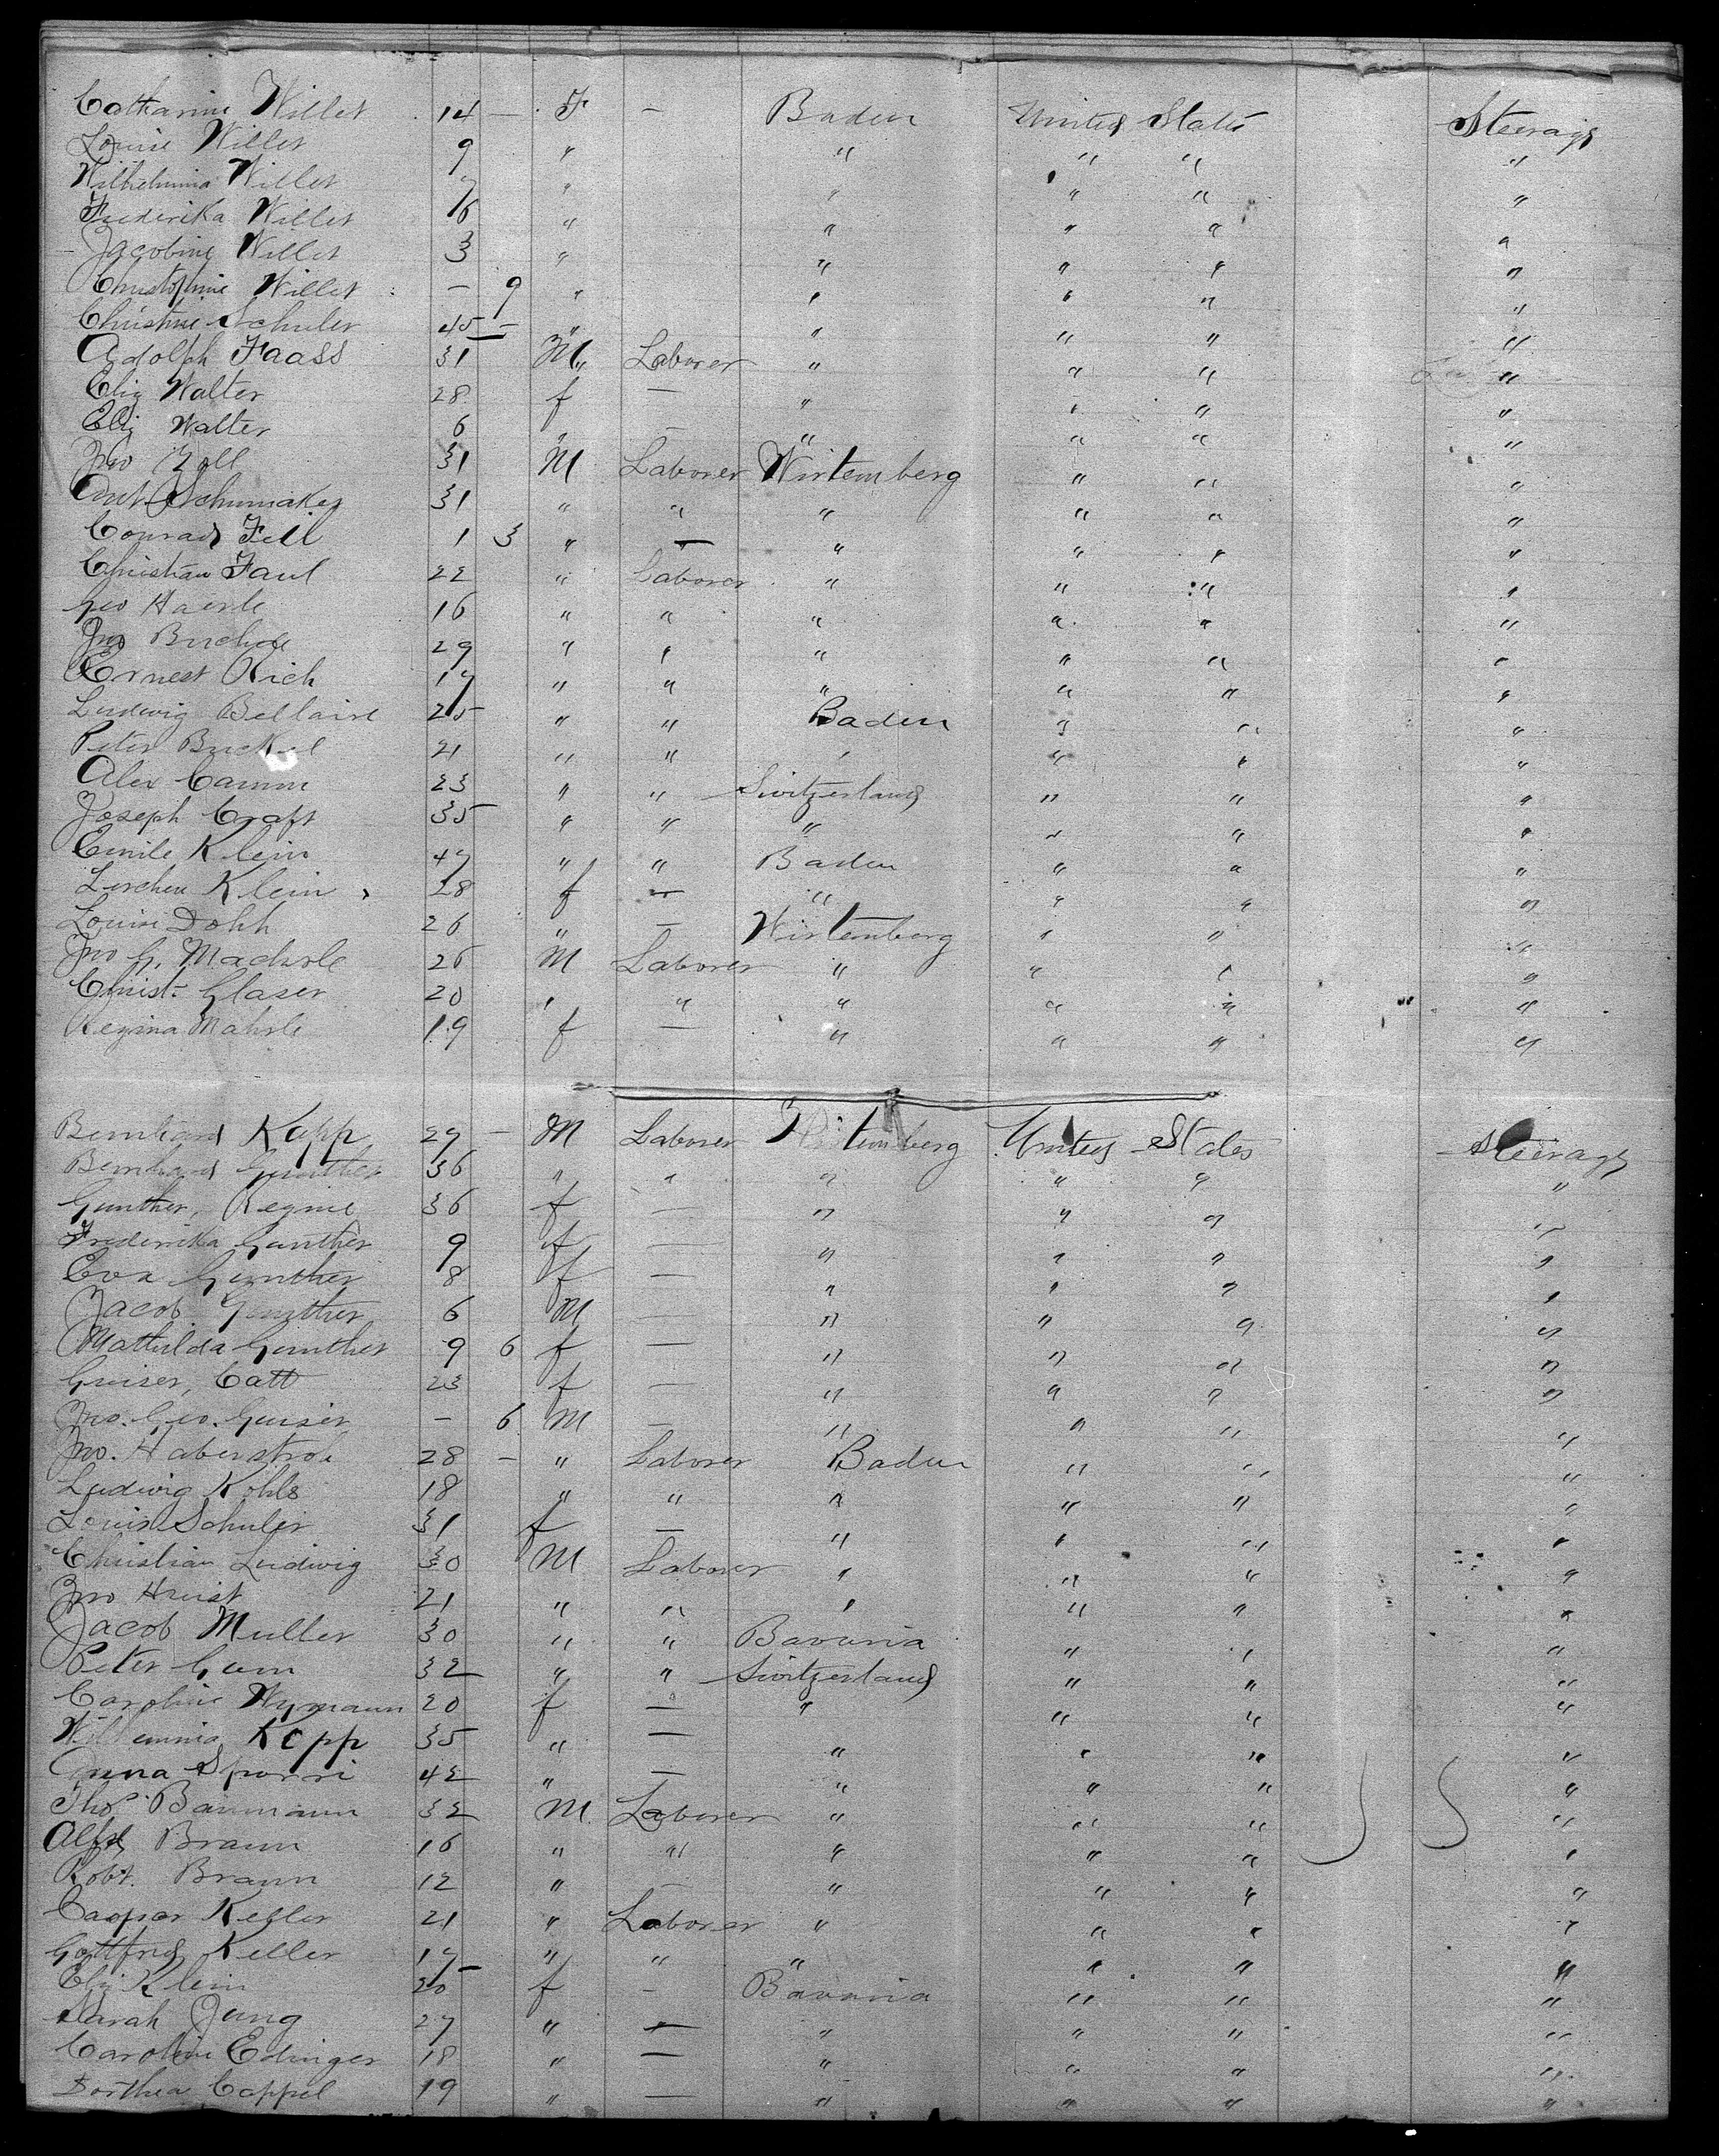 Catharine Willet 14 — F — Baden United States Steerage
Louise Willet 9 " " " " "
Wilhelmina Willet 7 " " " " "
Frederika Willet 6 " " " " "
Jacobine Willet 3 " " " " "
Christophine Willet — 9 " " " " "
Christine Schuler 45 — " " " " "
Adolph Faass 31 M " Laborer " " " "
Eliz Walter 28 f — " " " "
Eliz Walter 6 " — " " " "
Jno Zoll 31 M Laborer Wirtemberg " " "
Ant Schumaker 31 " " " " " "
Conrad Fell 1 3 " — " " " "
Christian Faul 22 " Laborer " " " "
Geo Haerle 16 " " " " " "
Jno 29 " " " " " "
Ernest Rich 17 " " " " " "
Ludwig Bellaire 25 " " Baden " " "
Peter Buckel 21 " " " " " "
Alex Camm 23 " " Switzerland " " "
Joseph Craft 35 " " " " " "
Emile Klein 47 " " Baden " " "
Lerchen Klein 28 f — " " " "
Louise Dohh 26 " — Wirtemberg " " "
Jno G. Madurle 26 M Laborer " " " "
Christ. Glaser 20 " " " " " "
Regina Mahrle 19 f — " " " "
Bernhard Kapp 27 — M Laborer Wirtemberg United States Steerage
Bernhard Gunther 36 " " " " " "
Gunther, Regine 36 f — " " " "
Frederika Gunther 9 f — " " " "
Eva Gunther 8 f — " " " "
Jacob Gunther 6 M — " " " "
Mathilda Gunther 9 6 f — " " " "
Greiser, Catt 23 f — " " " "
Jno. Geo. Greiser — 6 M — " " " "
Jno. Haberstroh 28 — " Laborer Baden " " "
Ludwig Kohls 18 " " " " " "
Louis Schuler 31 f — " " " "
Christian Ludwig 30 M Laborer " " " "
Jno Hurst 21 " " " " " "
Jacob Muller 30 " " Bavaria " " "
Peter Gum 32 " " Switzerland " " "
Caroline Wymann 20 f — " " " "
Willemina Kopp 35 " — " " " "
Anna Sporri 42 " — " " " "
Tho Baumann 32 M Laborer " " " "
Alfd Braun 16 " " " " " "
Robt. Braun 12 " — " " " "
Caspar Keller 21 " Laborer " " " "
Gottfried Keller 17 " " " " " "
Eliz Klein 20 f — Bavaria " " "
Sarah Jung 27 " — " " " "
Caroline Edinger 18 " — " " " "
Dorthea Cappel 19 " — " " " "